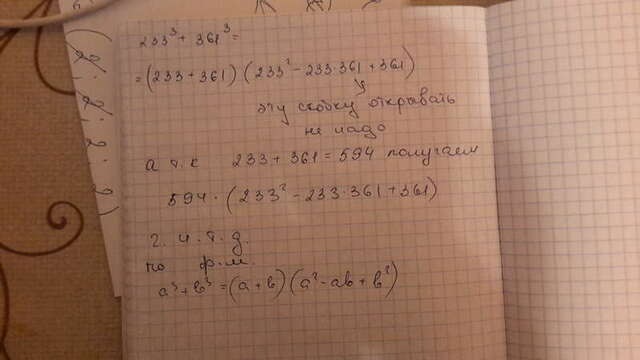 233³ + 361³ =
= (233 + 361) (233² - 233·361 + 361)
эту скобку открывать
не надо
а т.к 233 + 361 = 594 получаем
594 · (233² - 233·361 + 361)
2. и.т.д.
по ф.ш.
a³ + b³ = (a + b) (a² - ab + b²)